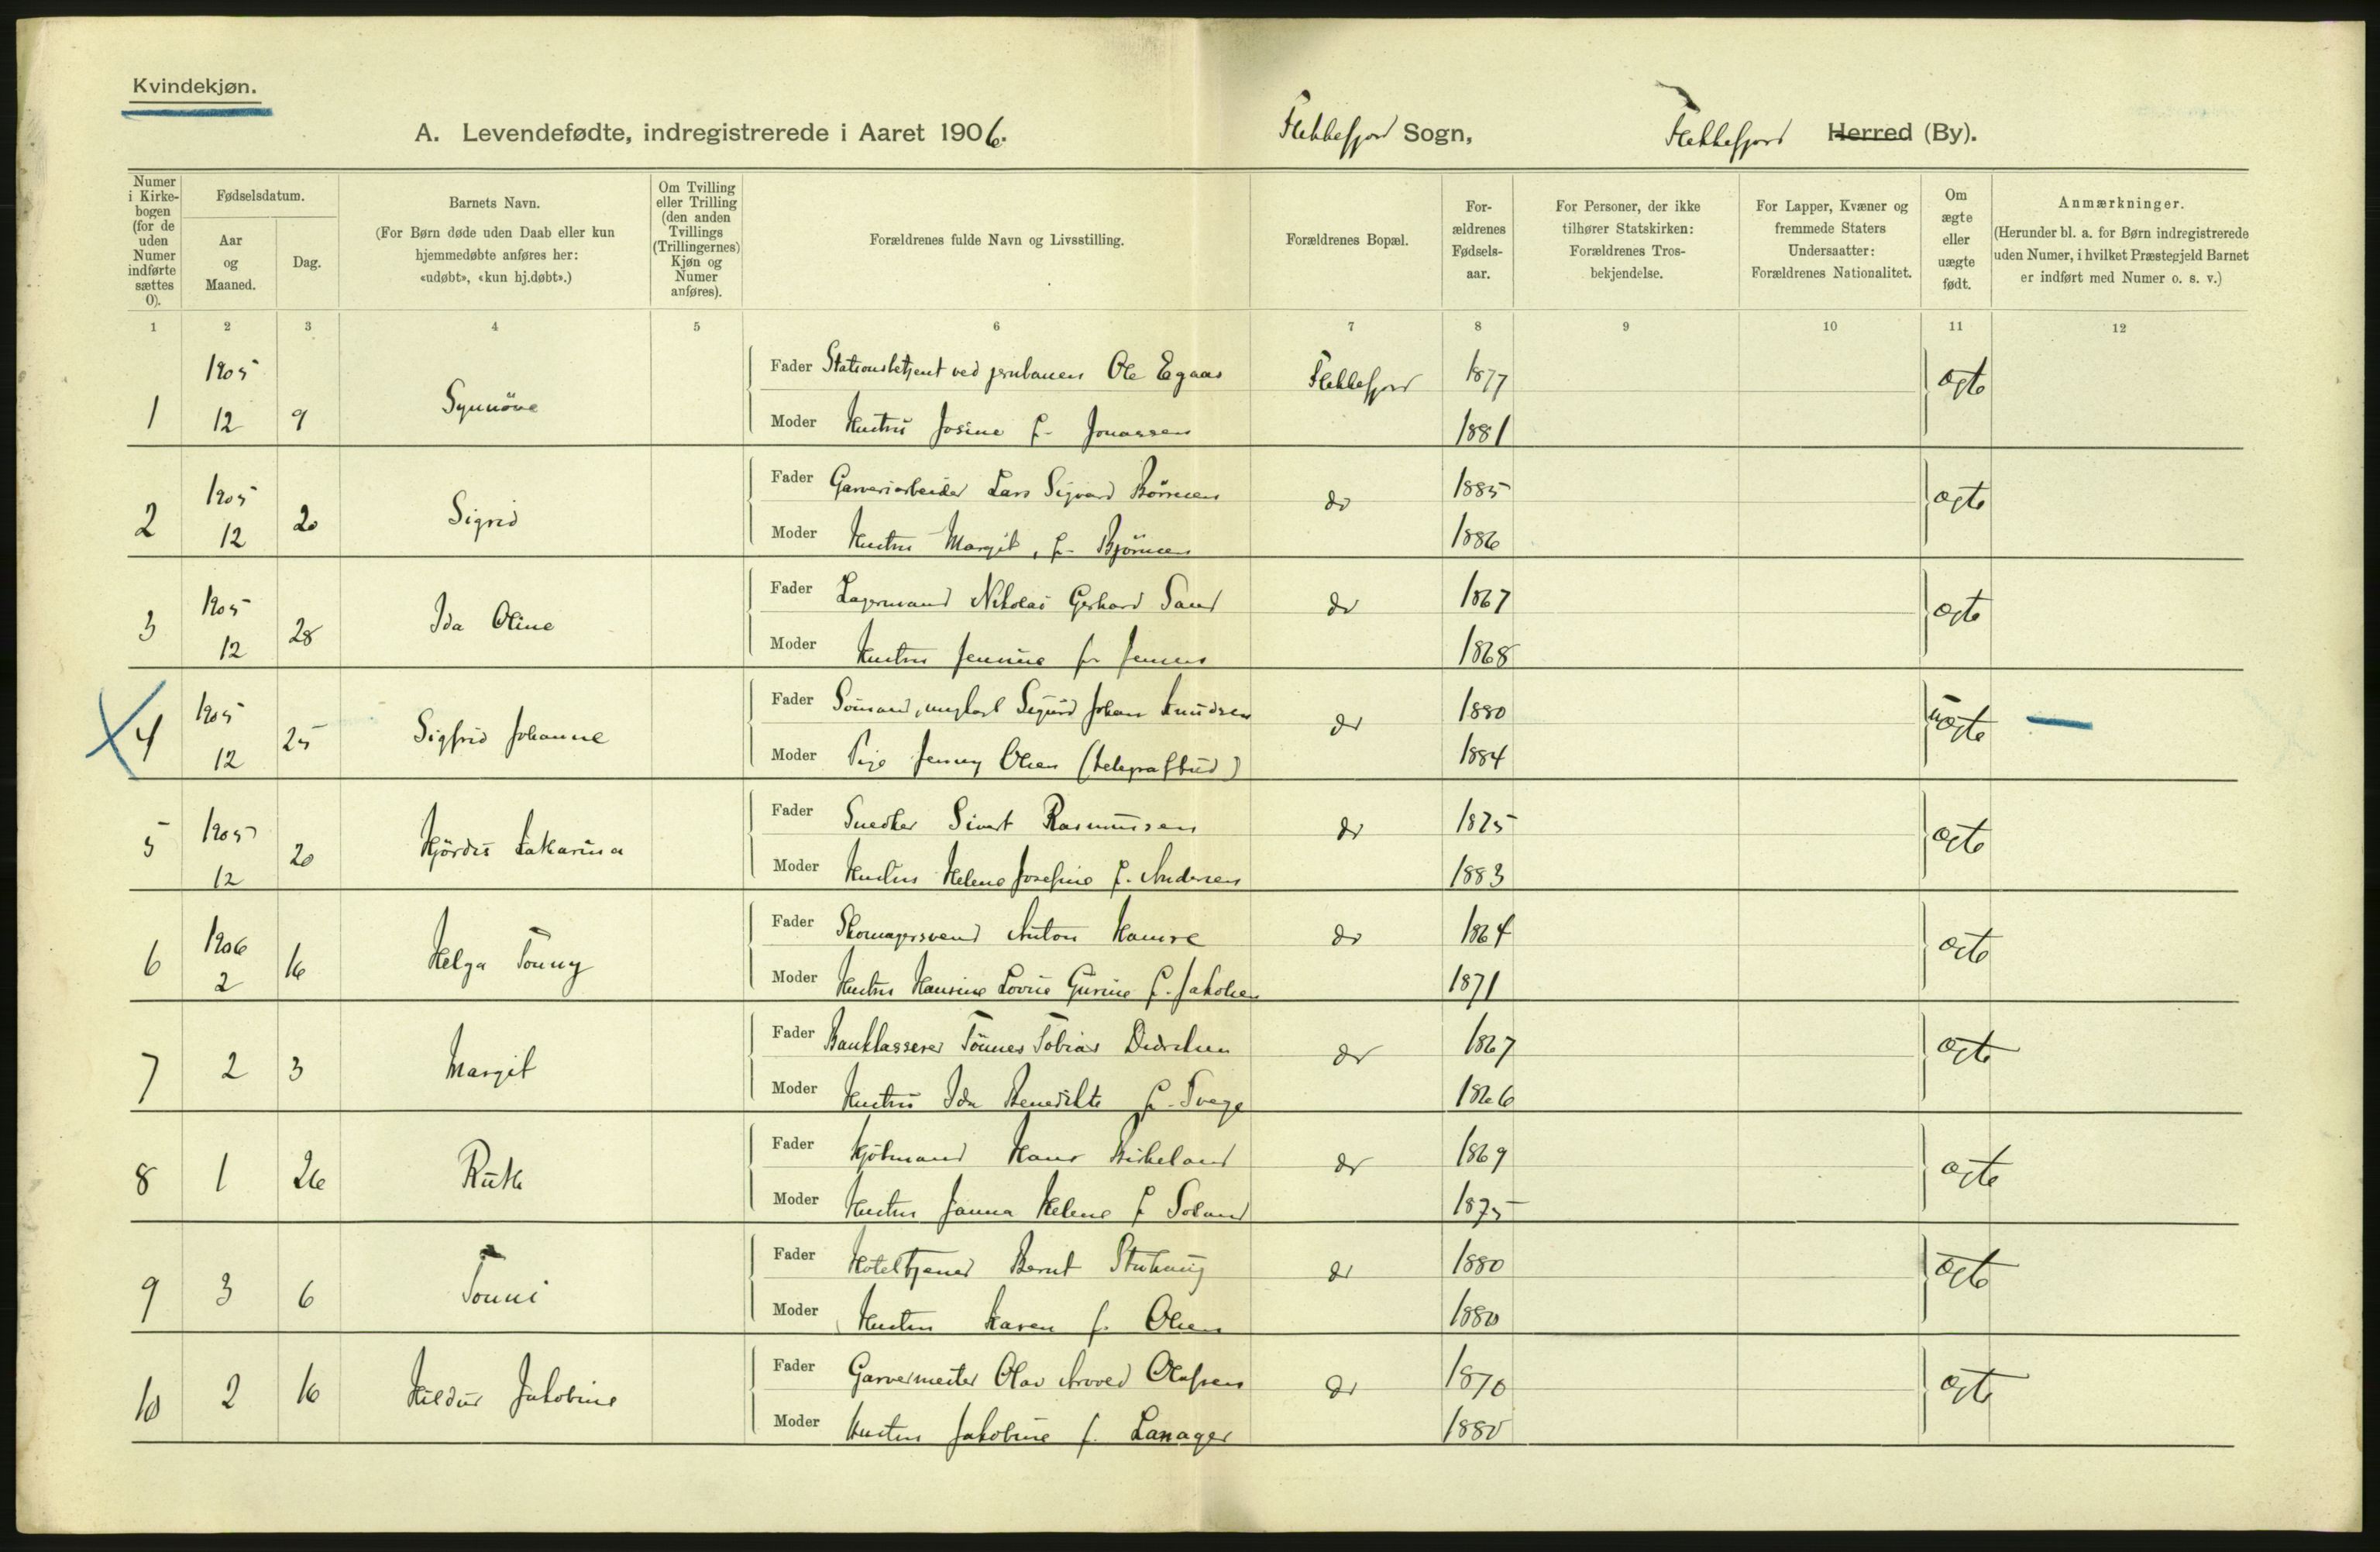 Kvindekjøn.
A. Levendefødte, indregistrerede i Aaret 1906. Flekkefjord Sogn, Flekkefjord Herred (By).
Numer i Kirkebogen (for de uden Numer indførte sættes 0).
Fødselsdatum.
Aar og Maaned.
Dag.
Barnets Navn.
(For Børn døde uden Daab eller kun hjemmedøbte anføres her: «udøbt», «kun hj.døbt».)
Om Tvilling eller Trilling (den anden Tvillings (Trillingernes) Kjøn og Numer anføres).
Forældrenes fulde Navn og Livsstilling.
Forældrenes Bopæl.
For-ældrenes Fødsels-aar.
For Personer, der ikke tilhører Statskirken: Forældrenes Tros-bekjendelse.
For Lapper, Kvæner og fremmede Staters Undersaatter: Forældrenes Nationalitet.
Om ægte eller uægte født.
Anmærkninger.
(Herunder bl. a. for Børn indregistrerede uden Numer, i hvilket Præstegjeld Barnet er indført med Numer o. s. v.)
1 2 3 4 5 6 7 8 9 10 11 12
1 1905 12 9 Synnöve Fader Stationsbetjent ved jernbanen Ole Egaas Flekkefjord 1877 ægte
Moder Hustru Josine f. Jonassen 1881
2 1905 12 20 Sigrid Fader Garveriarbeider Lars Sigvard 1885 do ægte
Moder Hustru Margit, f. 1886
3 1905 12 28 Ida Oline Fader Lagermand Nikolai Gerhard Sand do 1867 ægte
Moder Hustru Jennine f. Jensen 1868
4 1905 12 25 Sigfrid Johanne Fader Sömand, ungkarl Sigurd Johan Knudsen do 1880 uægte
Moder Pige Jenny Olsen (telegrafbud) 1884
5 1905 12 20 Hjördis Katarina Fader Snedker Sivert Rasmussen do 1875 ægte
Moder Hustru Helene Josefine f. Andersen 1883
6 1906 2 16 Helga Tonny Fader Skomagersvend Anton Hamre do 1864 ægte
Moder Hustru Hansine Lovise Gurine f. Jakobsen 1871
7 2 3 Margit Fader Bankkasserer Tönnes Tobias Didriksen do 1867 ægte
Moder Hustru Ida Benedikte f. 1866
8 1 26 Ruth Fader Kjöbmand Hans Birkeland do 1869 ægte
Moder Hustru Janna Helene f. 1875
9 3 6 Tonni Fader Hoteltjener Bernt do 1880 ægte
Moder Hustru Karen f. Olsen 1880
10 2 16 Hildur Jakobine Fader Garvermester Olav Arvved Olafsen do 1870 ægte
Moder Hustru Jakobine f. Lanager 1880